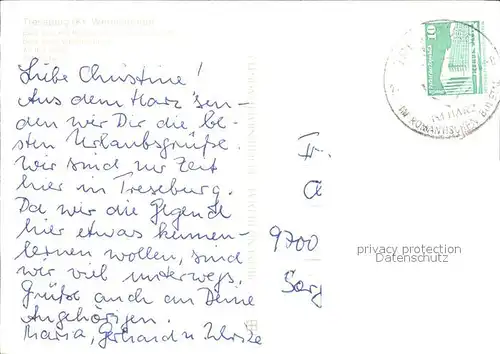 Treseburg (Kr. Wernigerode)
Liebe Christine!
Aus dem Harz sen-
den wir Dir die be-
sten Urlaubsgrüße.
Wir sind zur Zeit
hier in Treseburg.
Da wir die Gegend
hier etwas kennen-
lernen wollen, sind
wir viel unterwegs.
Grüße auch an Deine
Angehörigen.
Maria, Gerhard u.
10
IM HARZ
IM ROMANTISCHEN BODETAL
Fr.
9700
privacy protection
Datenschutz